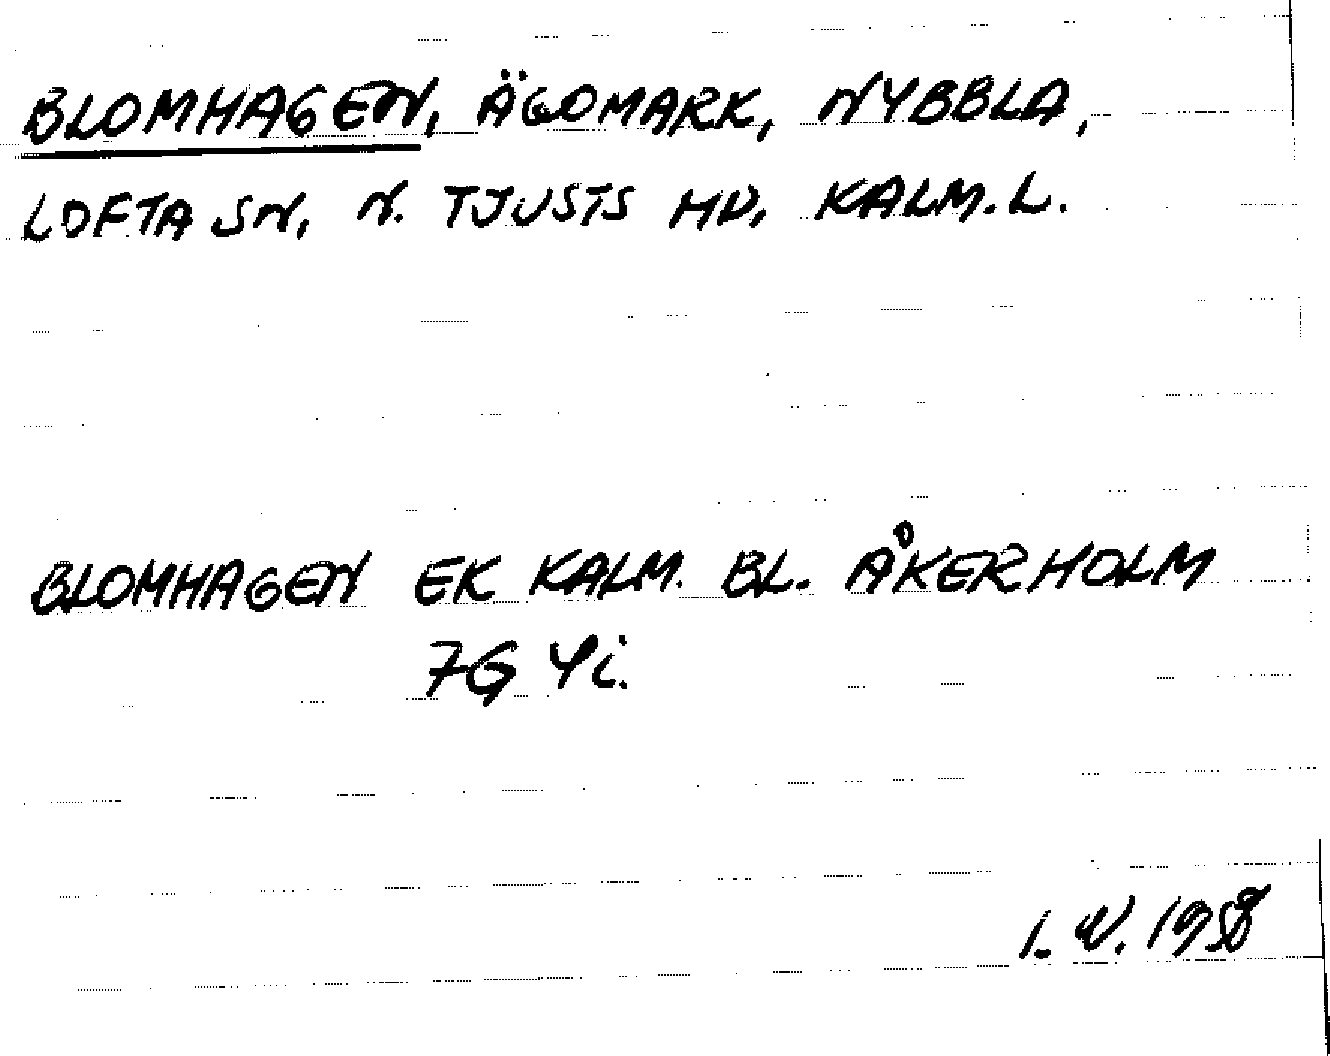 BLOMHAGEN, ÄGOMARK, NYBBLA,
LOFTA SN, N. TJUSTS HD, KALM. L.
BLOMHAGEN EK KALM. BL. ÅKERHOLM
7G 4i.
I. W. 1958